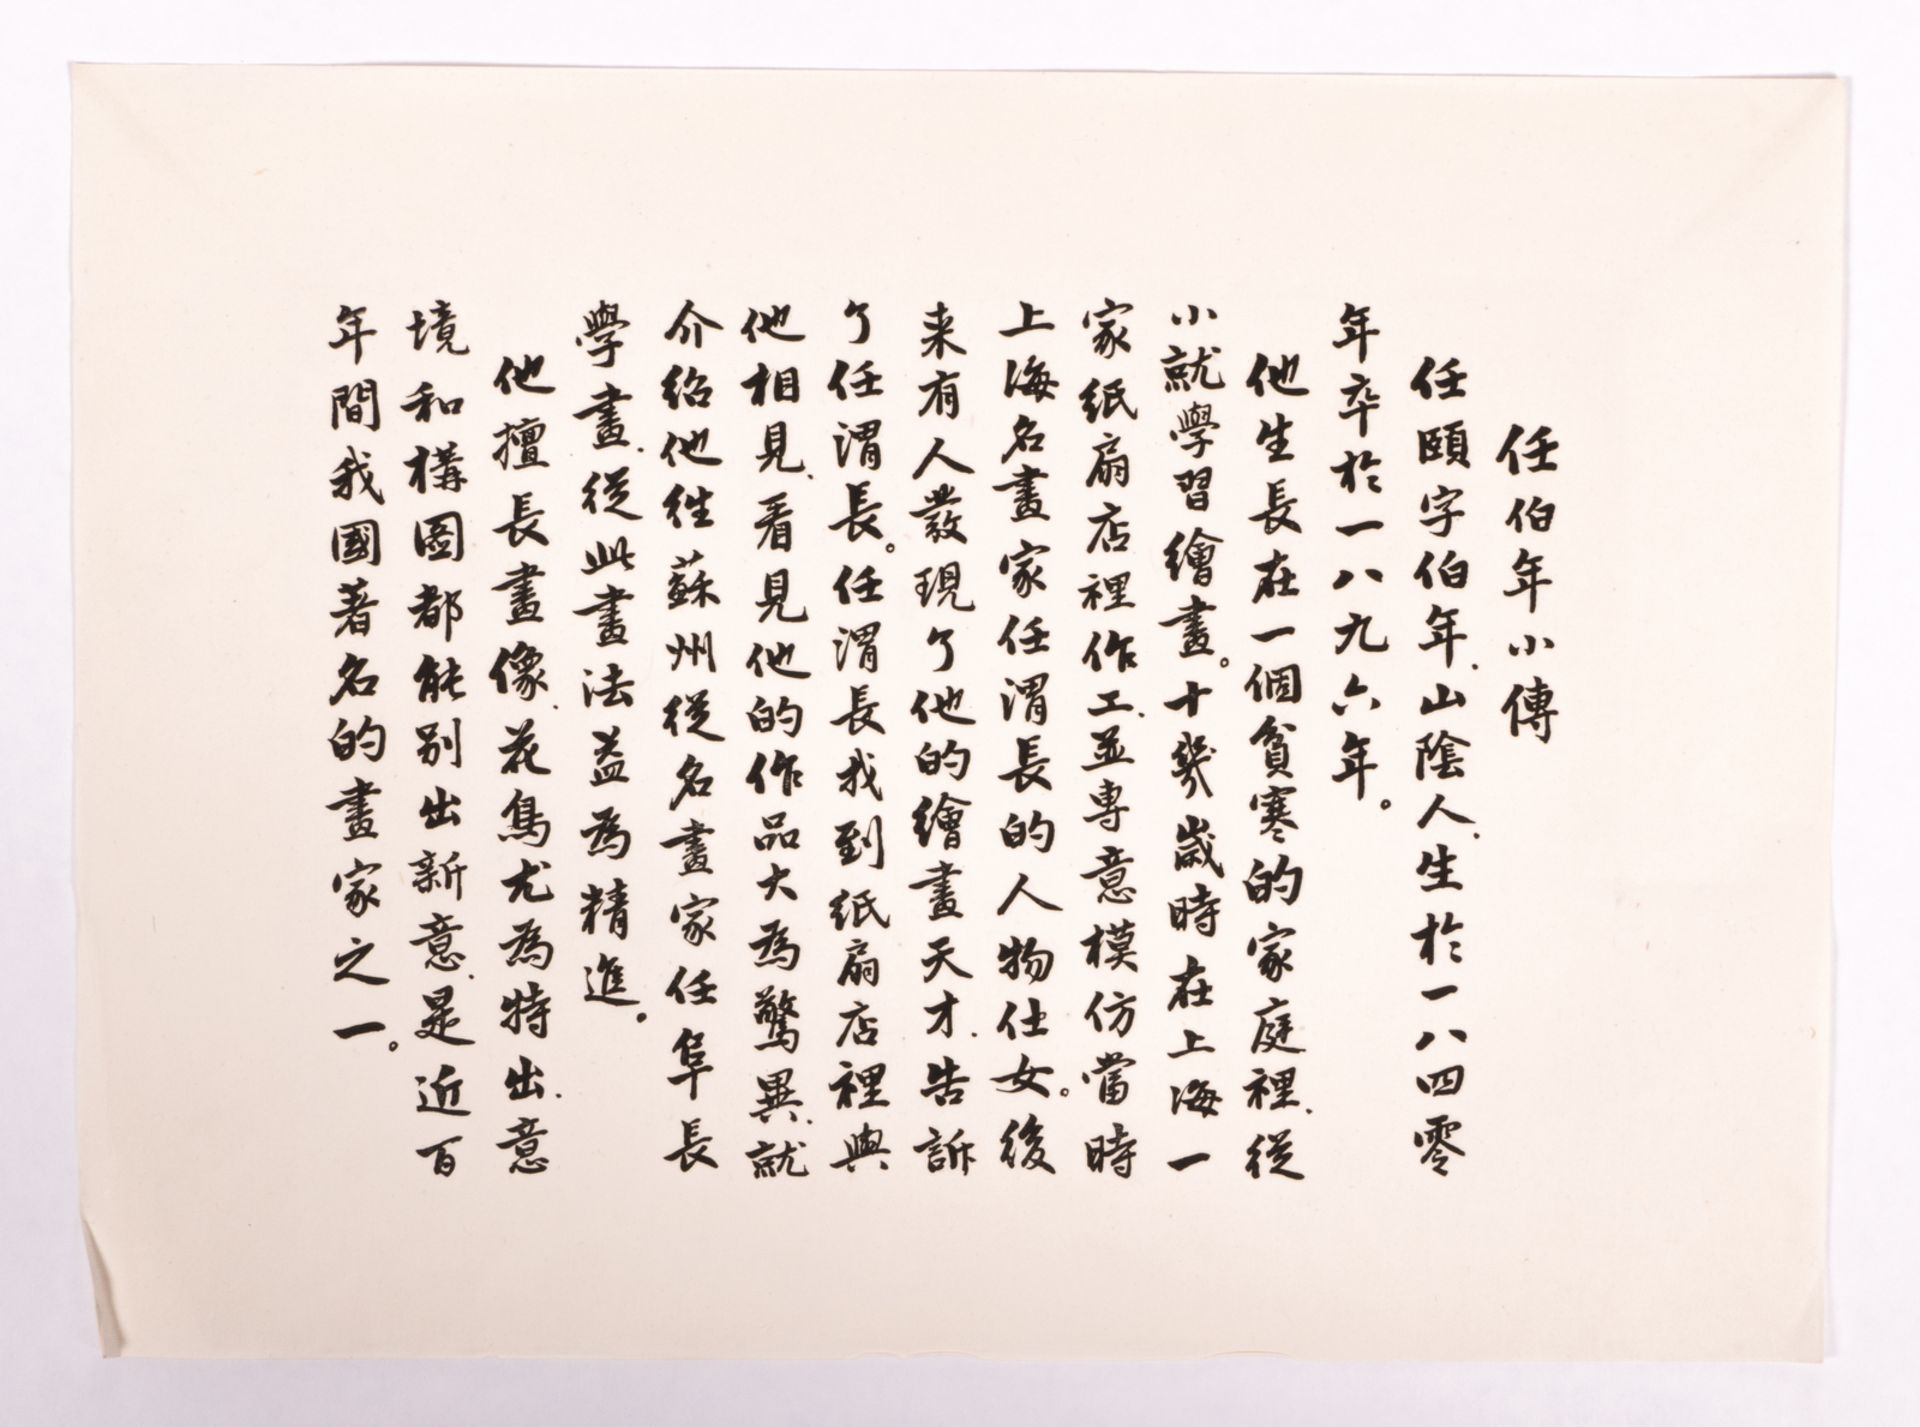 任伯年小傳
任頤字伯年、山陰人、生於一八四零
年卒於一八九六年。
他生長在一個貧寒的家庭裡、從
小就學習繪畫。十幾歲時在上海一
家紙扇店裡作工、並專意模仿當時
上海名畫家任渭長的人物仕女。後
来有人發現了他的繪畫天才、告訴
了任渭長。任渭長找到紙扇店裡與
他相見、看見他的作品大為驚異、就
介紹他往蘇州從名畫家任阜長
學畫、從此畫法益為精進。
他擅長畫像、花鳥尤為特出、意
境和構圖都能别出新意、是近百
年間我國著名的畫家之一。